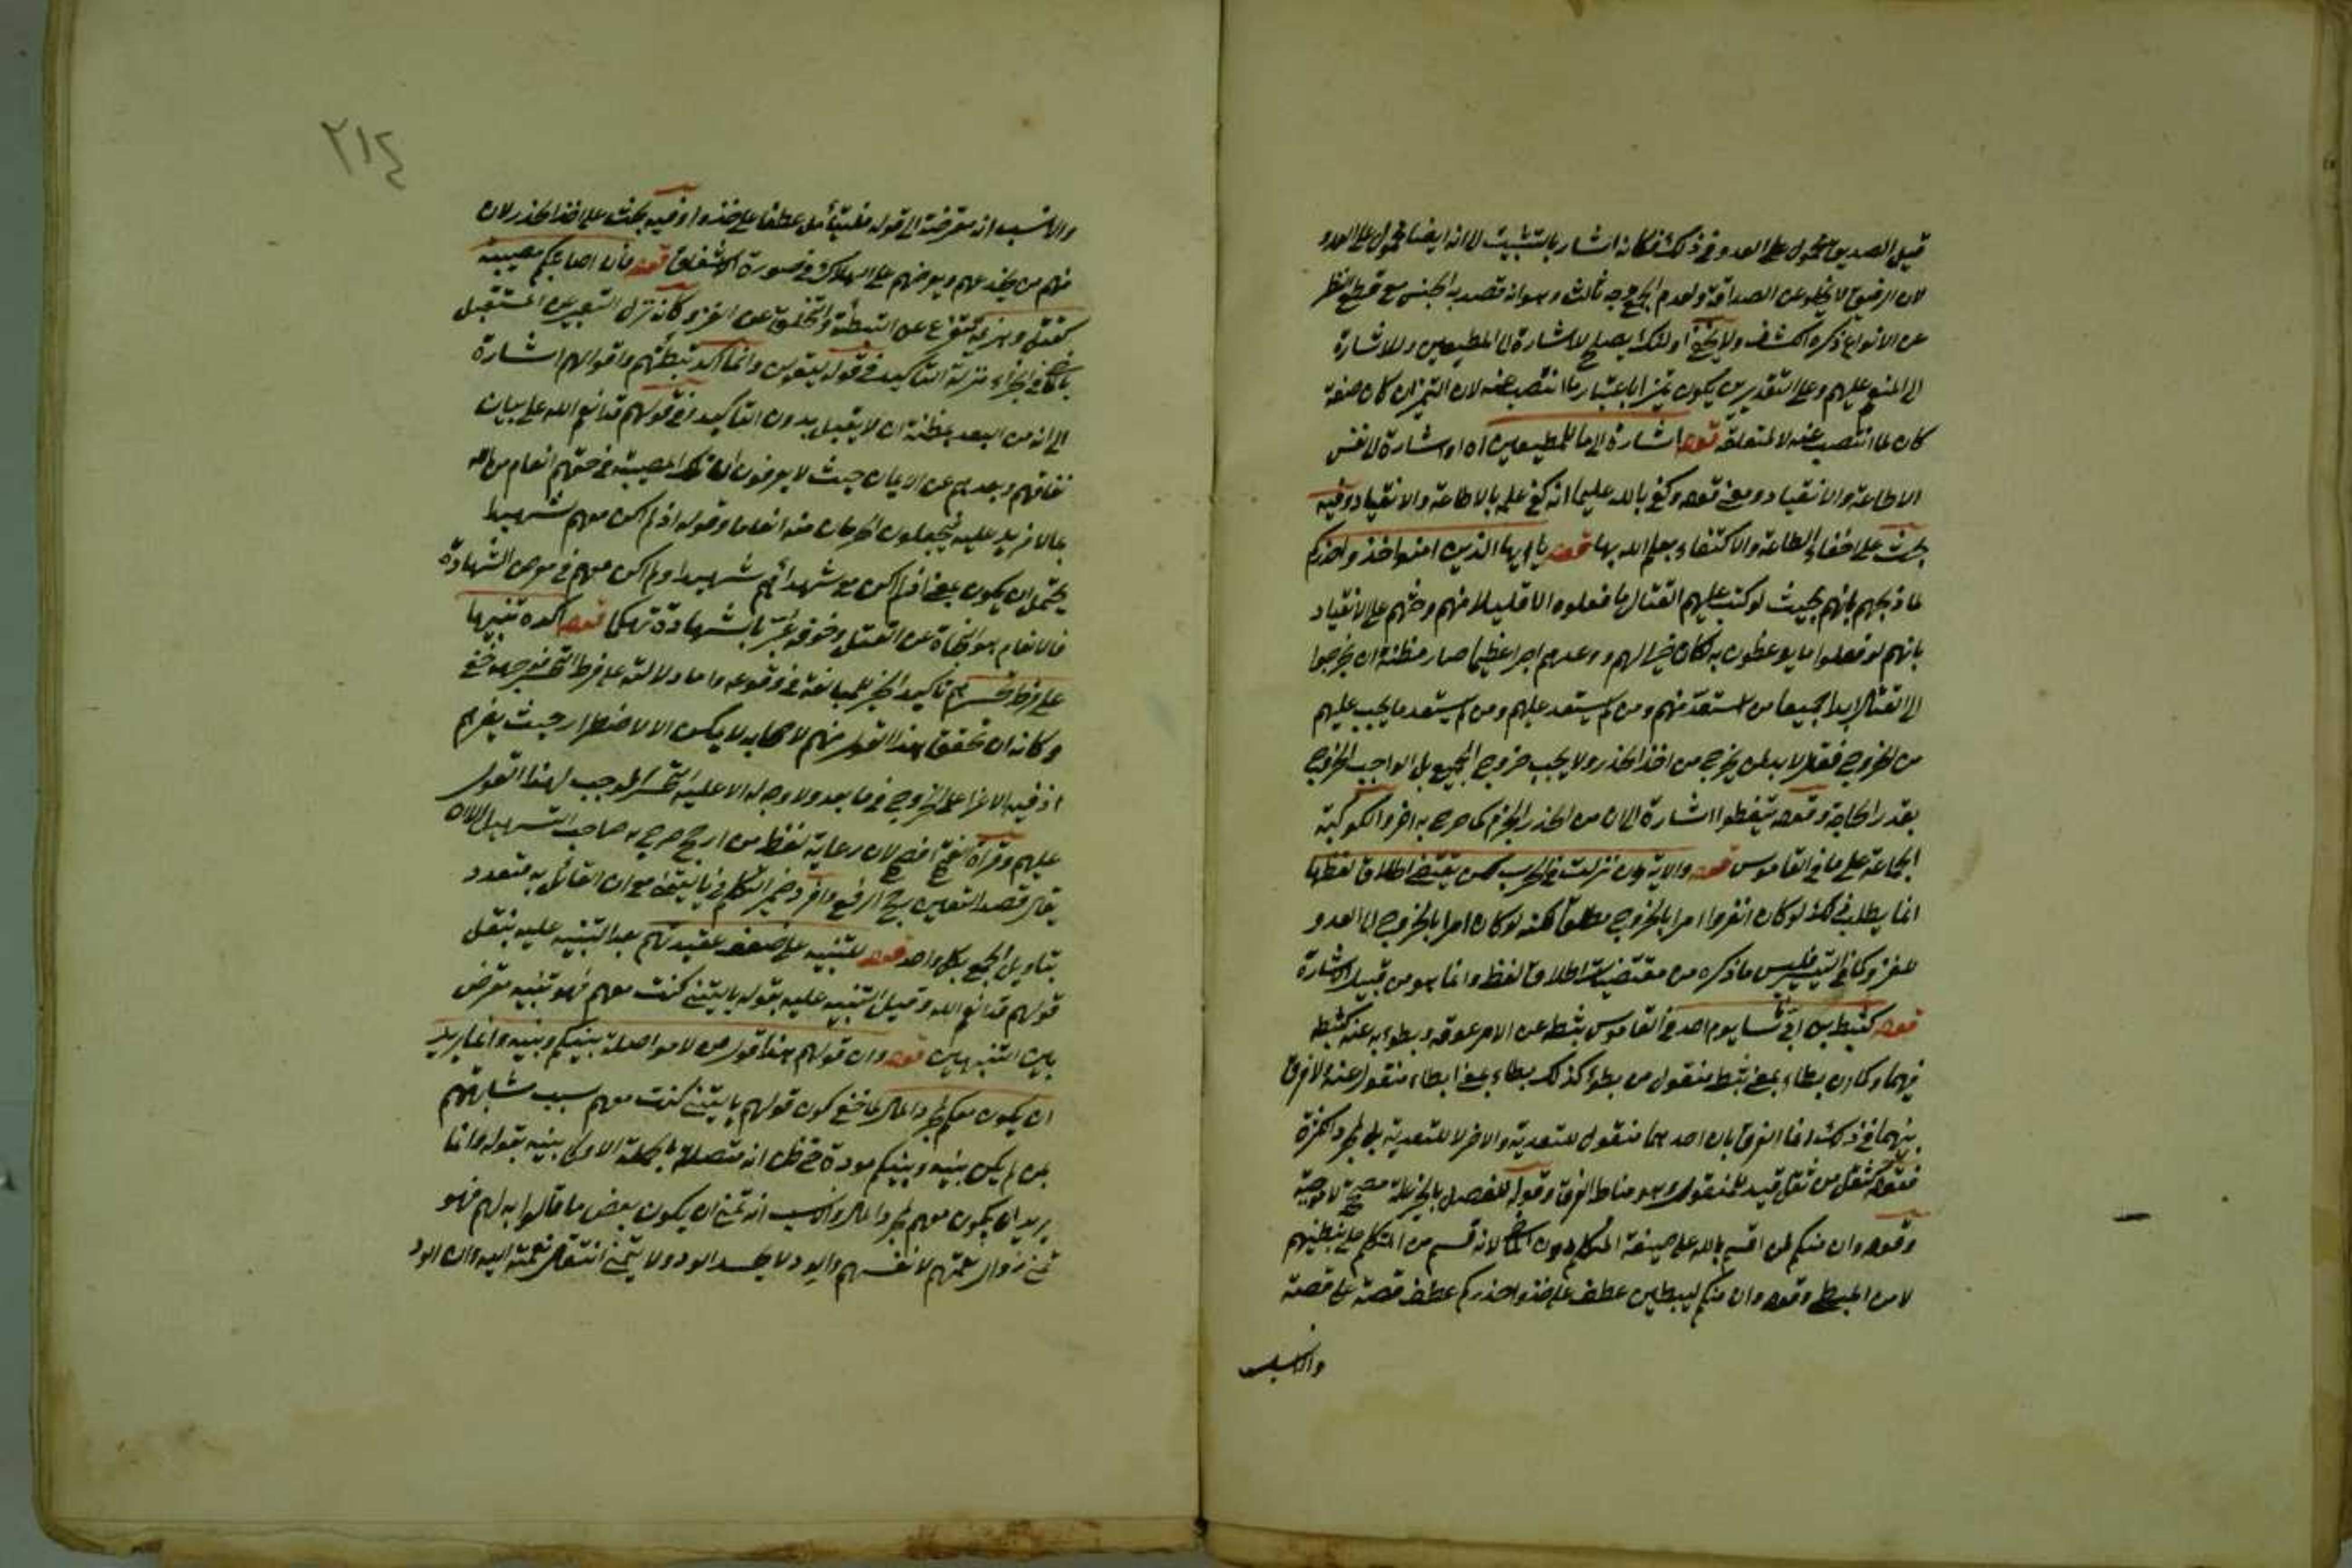 قيل الصديق محمول على العدو في ذلك فكانه اشار بالتشبيث الى انه ايضا محمول على العدو
لان الرفيق لا يخلو عن الصداقة ولعدم الجمع وجه ثالث وهو انه قصد به الجنس مع قطع النظر
عن الانواع ذكره الكشاف ولا يخفى ان اولئك يصلح للاشارة الى المطيعين وللاشارة
الى المنعم عليهم وعلى التقديرين يكون تميزا باعتبار ما انتصب عنه لان التميز ان كان صفة
كان لما انتصب عنه لا لمتعلقه قوله اشارة الى ما للمطيعين اه او اشارة الى نفس
الاطاعة والانقياد ومعنى قوله وكفى بالله عليما انه كفى علمه بالاطاعة والانقياد وفيه
بحث على اخفاء الطاعة والاكتفاء بعلم الله بها قوله يا ايها الذين امنوا خذوا حذركم
لما ذمهم بانهم بحيث لو كتب عليهم القتال ما فعلوه الا قليلا منهم وحثهم على الانقياد
بانهم لو فعلوا ما يوعظون به لكان خيرا لهم ووعدهم اجرا عظيما صار مظنة ان يخرجوا
الى القتال ابدا جميعا من استعد منهم ومن لم يستعد عليهم ومن لم يستعد ما يجب عليهم
من الخروج فقال لا بد لمن يخرج من اخذ الحذر ولا يجب خروج الجميع بل الواجب الخروج
بقدر الحاجة وقوله تيقظوا اشارة الى ان من الحذر الحزم كما صرح به اخر والكوكبة
الجماعة على ما في القاموس قوله والاية وان نزلت في الحرب لكن يقتضي اطلاق لفظها
انما يطلب في ذلك لو كان انفروا امرا بالخروج مطلقا لكنه لو كان امرا بالخروج الى العدو
للغزو كما في التيسير فليس ما ذكره من مقتضيات اطلاق لفظ وانما هو من قبيل الاشارة
قوله كثبط بن ابي ناسا يوم احد في القاموس ثبطه عن الامر عوقه وبطؤ به عنه كثبطه
فيهما وكما ان بطاء بمعنى ثبط منقول من بطؤ كذلك بطاء بمعنى ابطاء منقول عنه ولا فرق
بينهما في ذلك انما الفرق بان احدهما منقول للتعدية والاخر لا للتعدية بل لمجرد الكثرة
فقوله كثقل من ثقل قيد للمنقول وهو مناط الفرق وقوله للفصل بالخبر لا
وقوله وان منكم لمن اقسم بالله على صيغة المتكلم دون الغائب لانه قسم من المتكلم على تبطئتهم
لا من المبطئ وقوله وان منكم ليبطئن عطف على خذوا حذركم عطف قصة على قصة
والانسب
٢١٤
والانسب انه معترضة الى قوله فليقاتل عطفا على خذوا وفيه بحث على اخذ الحذر لان
منهم من يخدعهم ويعرضهم على الهلاك في صورة الاشفاق قوله فان اصابتكم مصيبة
كقتل وهزيمة تفريع عن التبطئة والتخلف عن الغزو وكانه نزل التعبير عن المستقبل
بالماضي في الجزاء منزلة التاكيد في قوله ليقولن وانما اكد تبطئتهم واقوالهم اشارة
الى انه من البعد بمظنة ان لا يقبل بدون التاكيد وفي قولهم قد انعم الله علي بيان
نفاقهم وبعدهم عن الايمان حيث لا يعرفون ان تلك المصيبة في حقهم انعام من الله
بما لا مزيد عليه فيجعلون الحرمان منه انعاما وقوله اذ لم اكن معهم شهيدا
يحتمل ان يكون بمعنى اذ لم اكن مع شهدائهم شهيدا ولم اكن معهم في معرض الشهادة
فالانعام هو النجاة عن القتل وخوفه عبر بالشهادة تهكما قوله اكده تنبيها
على فرط تحسرهم تاكيد الخبر للمبالغة في وقوعه واما دلالته على فرط التحسر فوجهه خفي
وكانه ان تحقق هذا القول منهم لا محالة لا يكون الا لاضطرار حيث يضرهم
اذ فيه الاغراء على الخروج فيما بعد ولا وجه له الا غلبة التحسر الموجب لهذا القول
عليهم وقراءة الفتح افصح لان رعاية لفظ من ارجح صرح به صاحب التسهيل الا ان
يقال قصد التعيين يرجح الرفع وافرد ضمير المتكلم في يا ليتني مع ان القائل به متعدد
بتاويل الجمع بكل واحد قوله للتنبيه على ضعف عقيدتهم بعد التنبيه عليه بنقل
قولهم قد انعم الله وقبل التنبيه عليه بقوله يا ليتني كنت معهم فهو تنبيه معترض
بين التنبيهين قوله وان قولهم هذا قول من لا مواصلة بينكم وبينه وانما يريد
ان يكون معكم لمجرد المال لما خفي كون قولهم يا ليتني كنت معهم سبب مشابهتهم
بمن لم يكن بينه وبينكم مودة حتى ظن انه متصلة بالجملة الاولى بينه بقوله وانما
يريد ان يكون معهم لمجرد المال والانسب انه تمنى ان يكون بعض ما قالوا به لهم فهو
تمنى زوال نعمتهم لانفسهم والودود لا يحسد الودود ولا يتمنى انتقال نعمته اليه وان الود